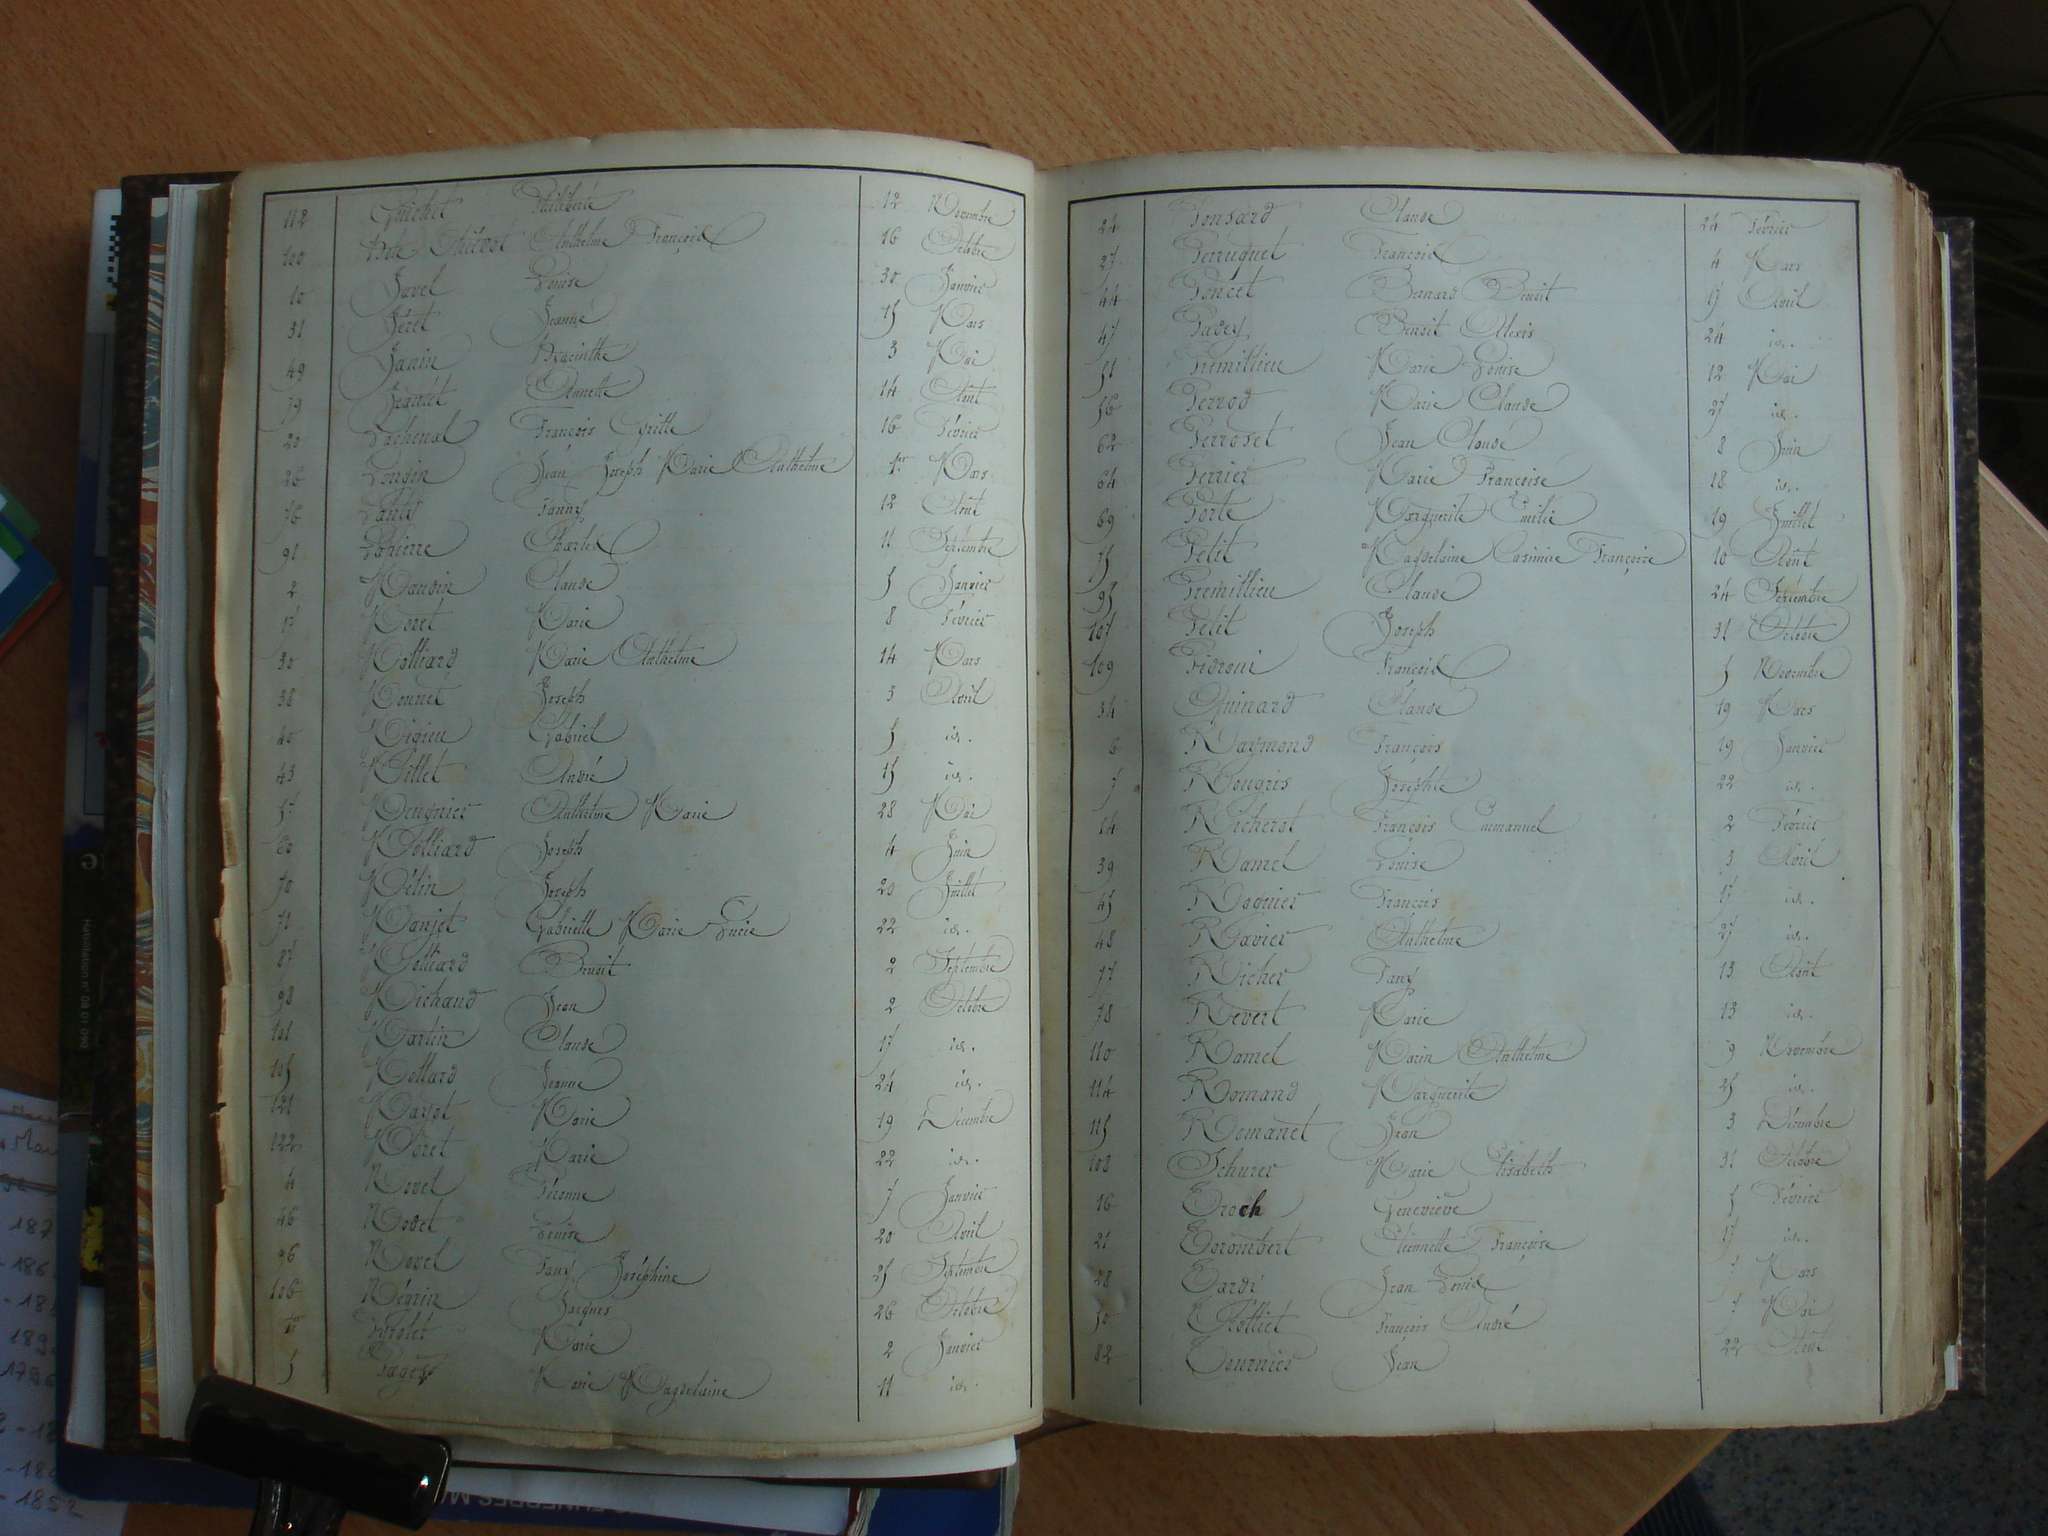 112 Guichet Philiberte 12 Novembre
100 Anthelme François 16 Octobre
10 Javel Louise 30 Janvier
31 Jeret Jeanne 15 Mars
49 Janin Hyacinthe 3 Mai
79 Annette 14 Août
20 Lachenal François Cyrille 16 Février
26 Longin Jean Joseph Marie Anthelme 1er Mars
76 Fanny 12 Août
91 Charles 11 Septembre
2 Maudin Claude 5 Janvier
17 Moret Marie 8 Février
30 Molliard Marie Anthelme 14 Mars
38 Monnet Joseph 3 Avril
40 Migieu Gabriel 5 id.
43 Millet André 15 id.
57 Mengnier Anthelme Marie 28 Mai
60 Molliard Joseph 4 Juin
70 Mélin Joseph 20 Juillet
71 Manjot Gabrielle Marie Lucie 22 id.
87 Molliard Benoit 2 Septembre
98 Michaud Jean 2 Octobre
101 Martin Claude 17 id.
105 Mollard Jeanne 24 id.
121 Marjot Marie 19 Décembre
122 Moret Marie 22 id.
4 Novel Péronne 7 Janvier
46 Nodet Louise 20 Avril
96 Novel Fany Joséphine 25 Septembre
106 Négrin Jacques 26 Octobre
1er Marie 2 Janvier
5 Pages Marie Magdelaine 11 id.
24 Ponsard Claude 24 Février
27 Perruquet François 4 Mars
44 Poncet Benoit 17 Avril
47 Benoit Alexis 24 id.
51 Premillieu Marie Louise 12 Mai
56 Perrod Marie Claude 27 id.
62 Perroset Jean Claude 8 Juin
64 Perrier Marie Françoise 18 id.
69 Porte Marguerite Emilie 19 Juillet
75 Petit Magdelaine Casimire Françoise 10 Août
95 Premillieu Claude 24 Septembre
107 Petit Joseph 31 Octobre
109 Pidroni François 5 Novembre
34 Quinard Claude 19 Mars
6 Raymond François 19 Janvier
7 Rougris Josephte 22 id.
14 Richerot François Emmanuel 2 Février
39 Ramel Louise 3 Avril
45 Rognier François 17 id.
48 Ravier Anthelme 27 id.
77 Richer Fany 13 Août
78 Revert Marie 13 id.
110 Ramel Marin Anthelme 9 Novembre
114 Romand Marguerite 25 id.
115 Romanet Jean 3 Décembre
108 Schurer Marie Elisabeth 31 Octobre
16 Troch Geneviève 5 Février
21 Trombert Etiennette Françoise 17 id.
28 Tardi Jean Louis 7 Mars
50 Tolliet François André 7 Mai
82 Tournier Jean 22 Août